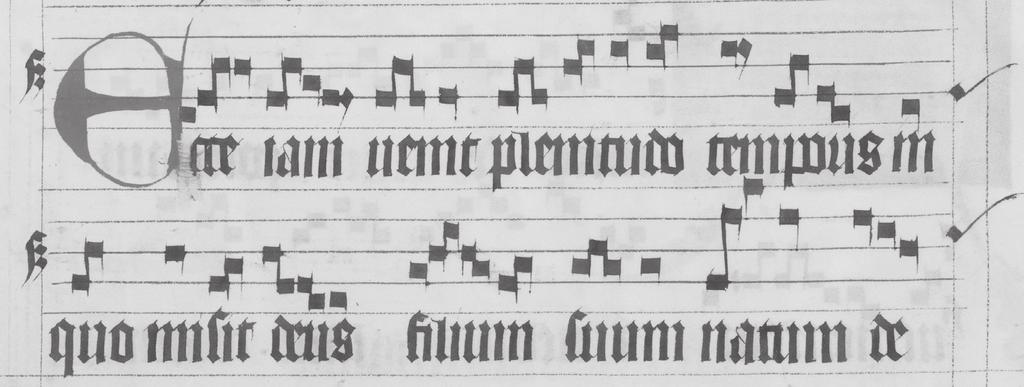 Ecce iam uenit plenitudo temporis in
quo misit deus filium suum natum de